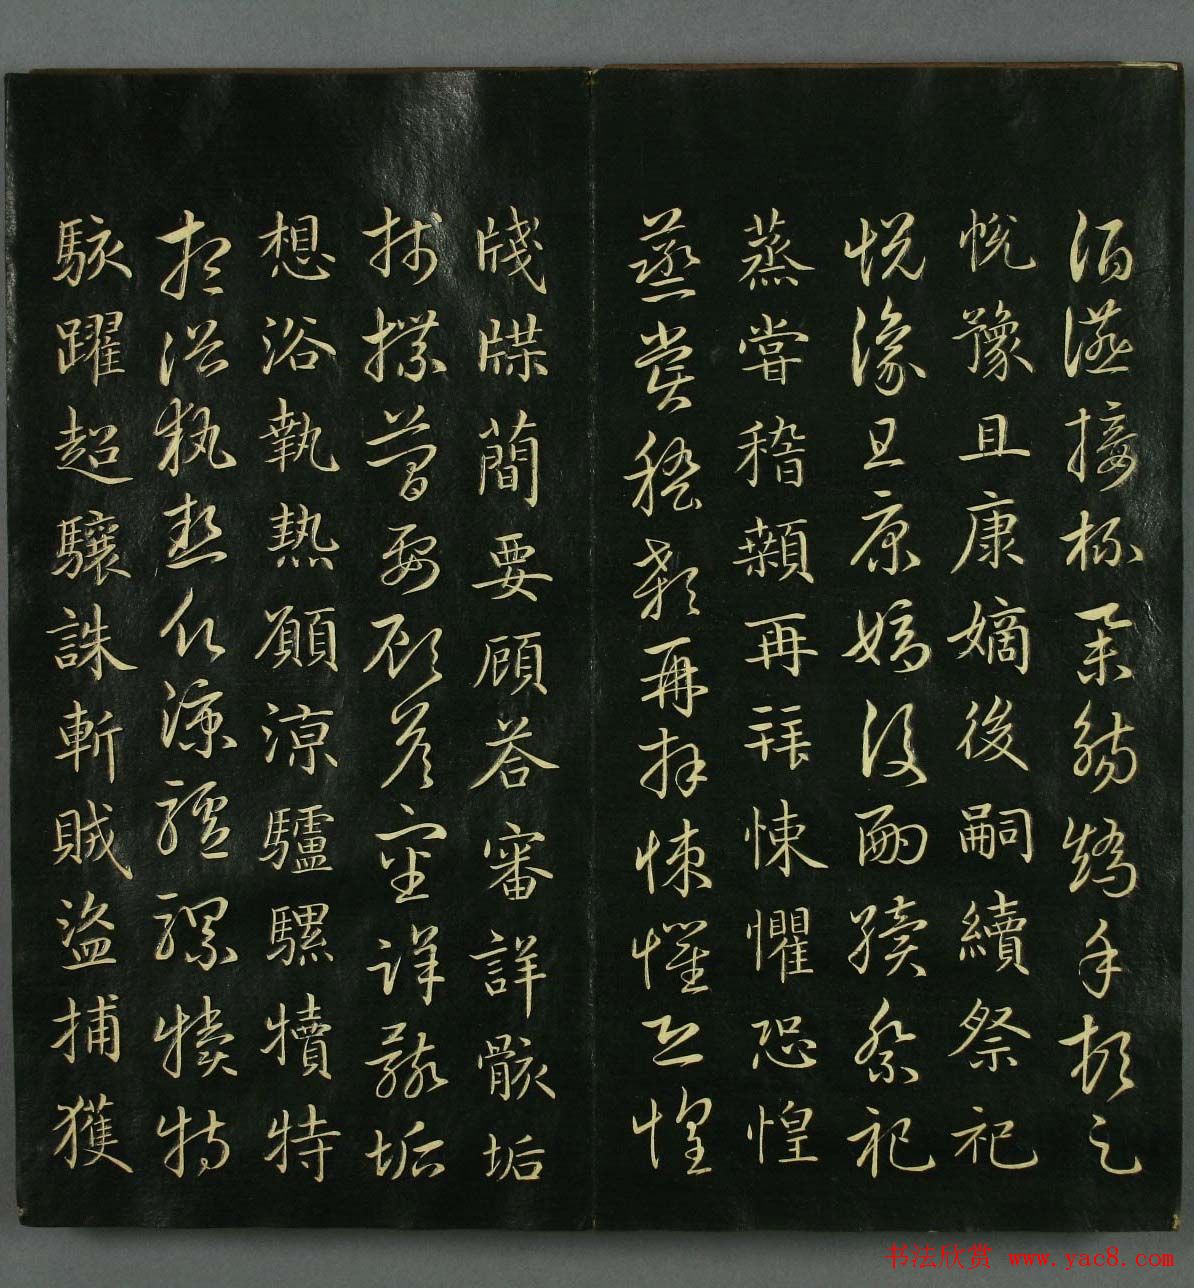 酒讌接杯舉觴矯手頓足
悅豫且康嫡後嗣續祭祀
悅豫且康嫡後嗣續祭祀
蒸嘗稽顙再拜悚懼恐惶
蒸嘗稽顙再拜悚懼恐惶
牋牒簡要顧荅審詳骸垢
牋牒簡要顧荅審詳骸垢
想浴執熱願涼驢騾犢特
想浴執熱願涼驢騾犢特
駭躍超驤誅斬賊盜捕獲
书法欣赏 www.yac8.com